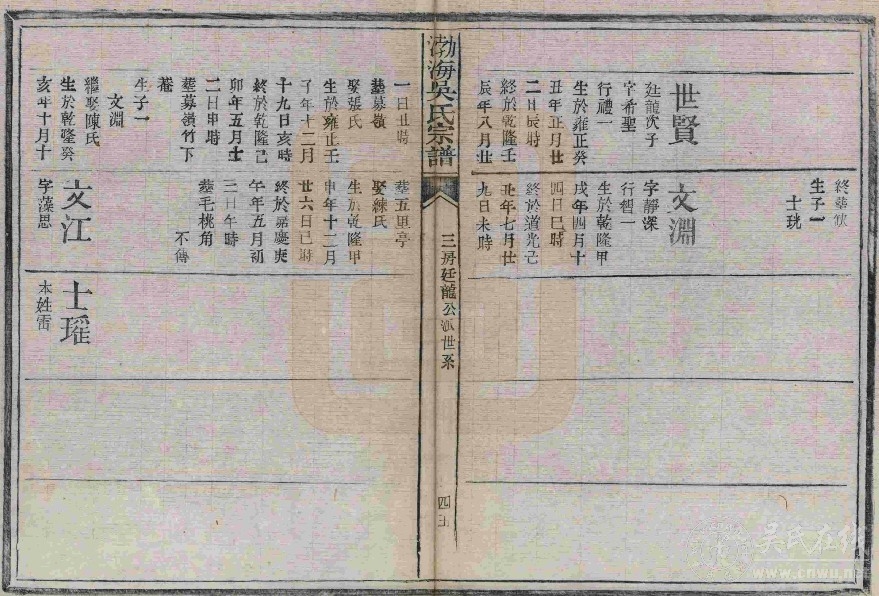 世賢
廷龍次子
字希聖
行禮一
生於雍正癸
丑年正月廿
二日辰時
終於乾隆壬
辰年八月廿
終葬缺
生子一
士珖
文淵
字靜深
行智一
生於乾隆甲
戌年四月十
四日巳時
終於道光己
丑年七月廿
九日未時
渤海吳氏宗譜
三房廷龍公派世系
四五
一日丑時
葬募嶺
娶張氏
生於雍正壬
子年十二月
十九日亥時
終於乾隆己
卯年五月廿
二日申時
葬募嶺竹下
菴
生子一
文淵
繼娶陳氏
生於乾隆癸
亥年十月十
葬五里亭
娶練氏
生於乾隆甲
申年十二月
廿六日巳時
終於嘉慶庚
午年五月初
三日午時
葬毛桃角
不傳
文江
字藻思
士瑤
本姓雷
吳氏在線
www.cnwu.net